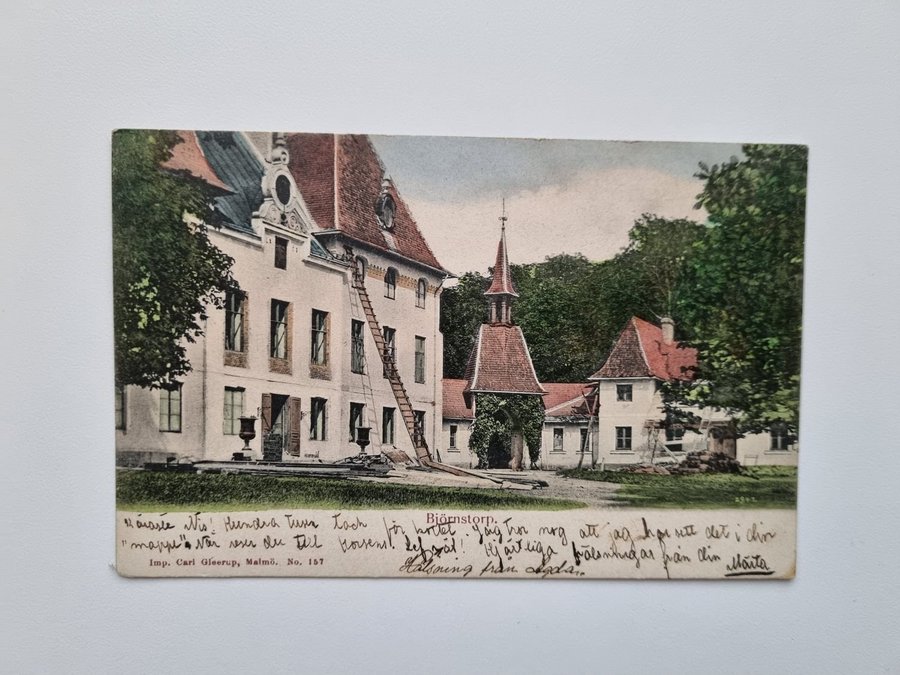 Björnstorp.
Käraste Nis! Hundra tusen tack för kortet. Jag tror nog att jag har sett det i din
"mapp". När reser du till Horsens? Lef väl! Hjärtliga hälsningar från din Märta
Hälsning från Agda.
Imp. Carl Gleerup, Malmö. No. 157